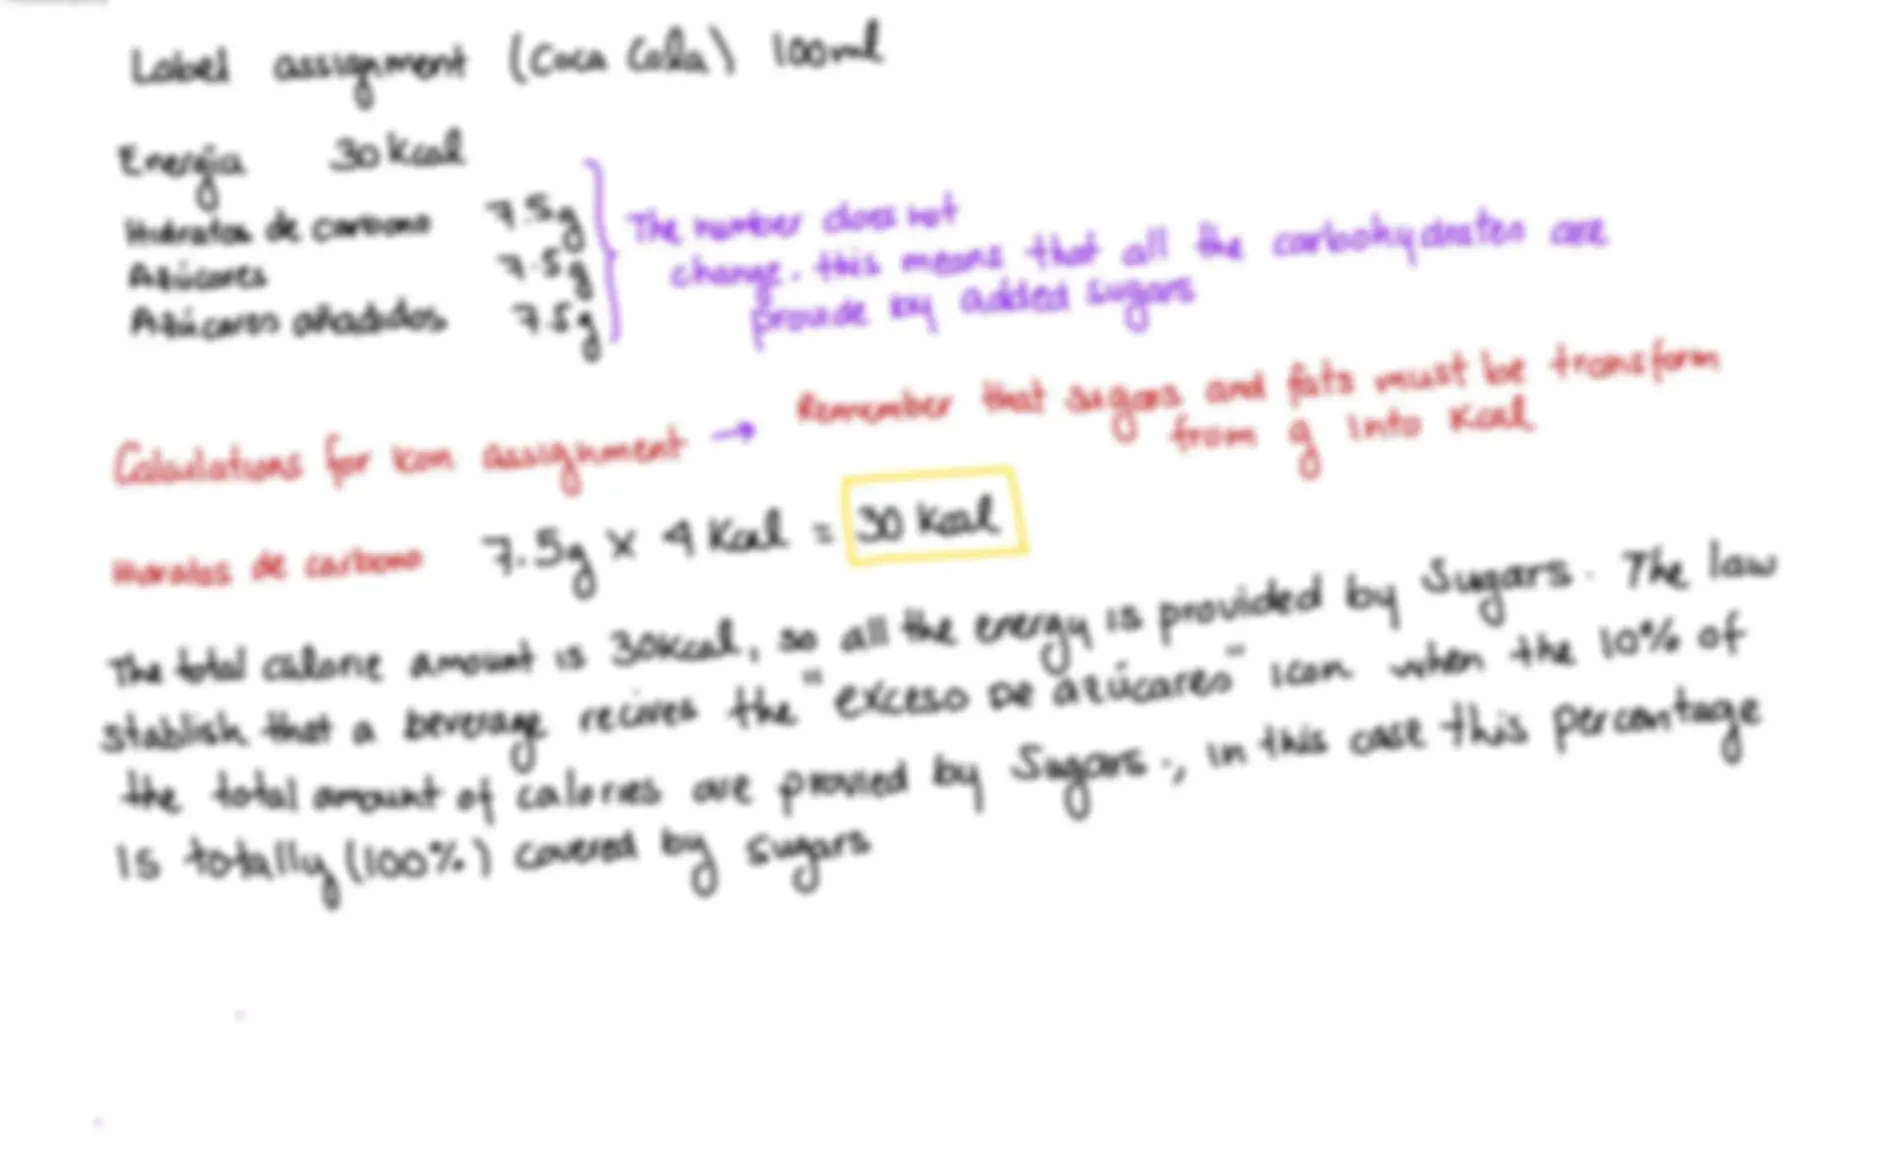 Label assignment (Coca Cola) 100ml
Energía 30 kcal
Hidratos de carbono 7.5g
Azúcares 7.5g
Azúcares añadidos 7.5g
The number does not
change. this means that all the carbohydrates are
provide by added sugars
Calculations for icon assignment → Remember that sugars and fats must be transform
from g into Kcal
Hidratos de carbono 7.5g x 4 Kcal = 30 kcal
The total calorie amount is 30kcal, so all the energy is provided by Sugars. The law
stablish that a beverage recives the "exceso de azúcares" icon when the 10% of
the total amount of calories are provied by Sugars., in this case this percentage
is totally (100%) covered by sugars